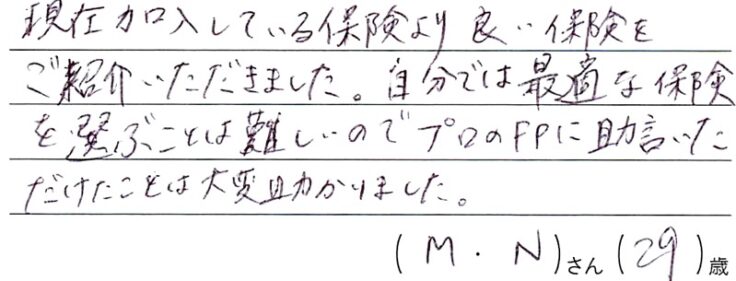 現在加入している保険より良い保険を
ご紹介いただきました。自分では最適な保険
を選ぶことは難しいのでプロのFPに助言いた
だけたことは大変助かりました。
(M・N)さん(29)歳